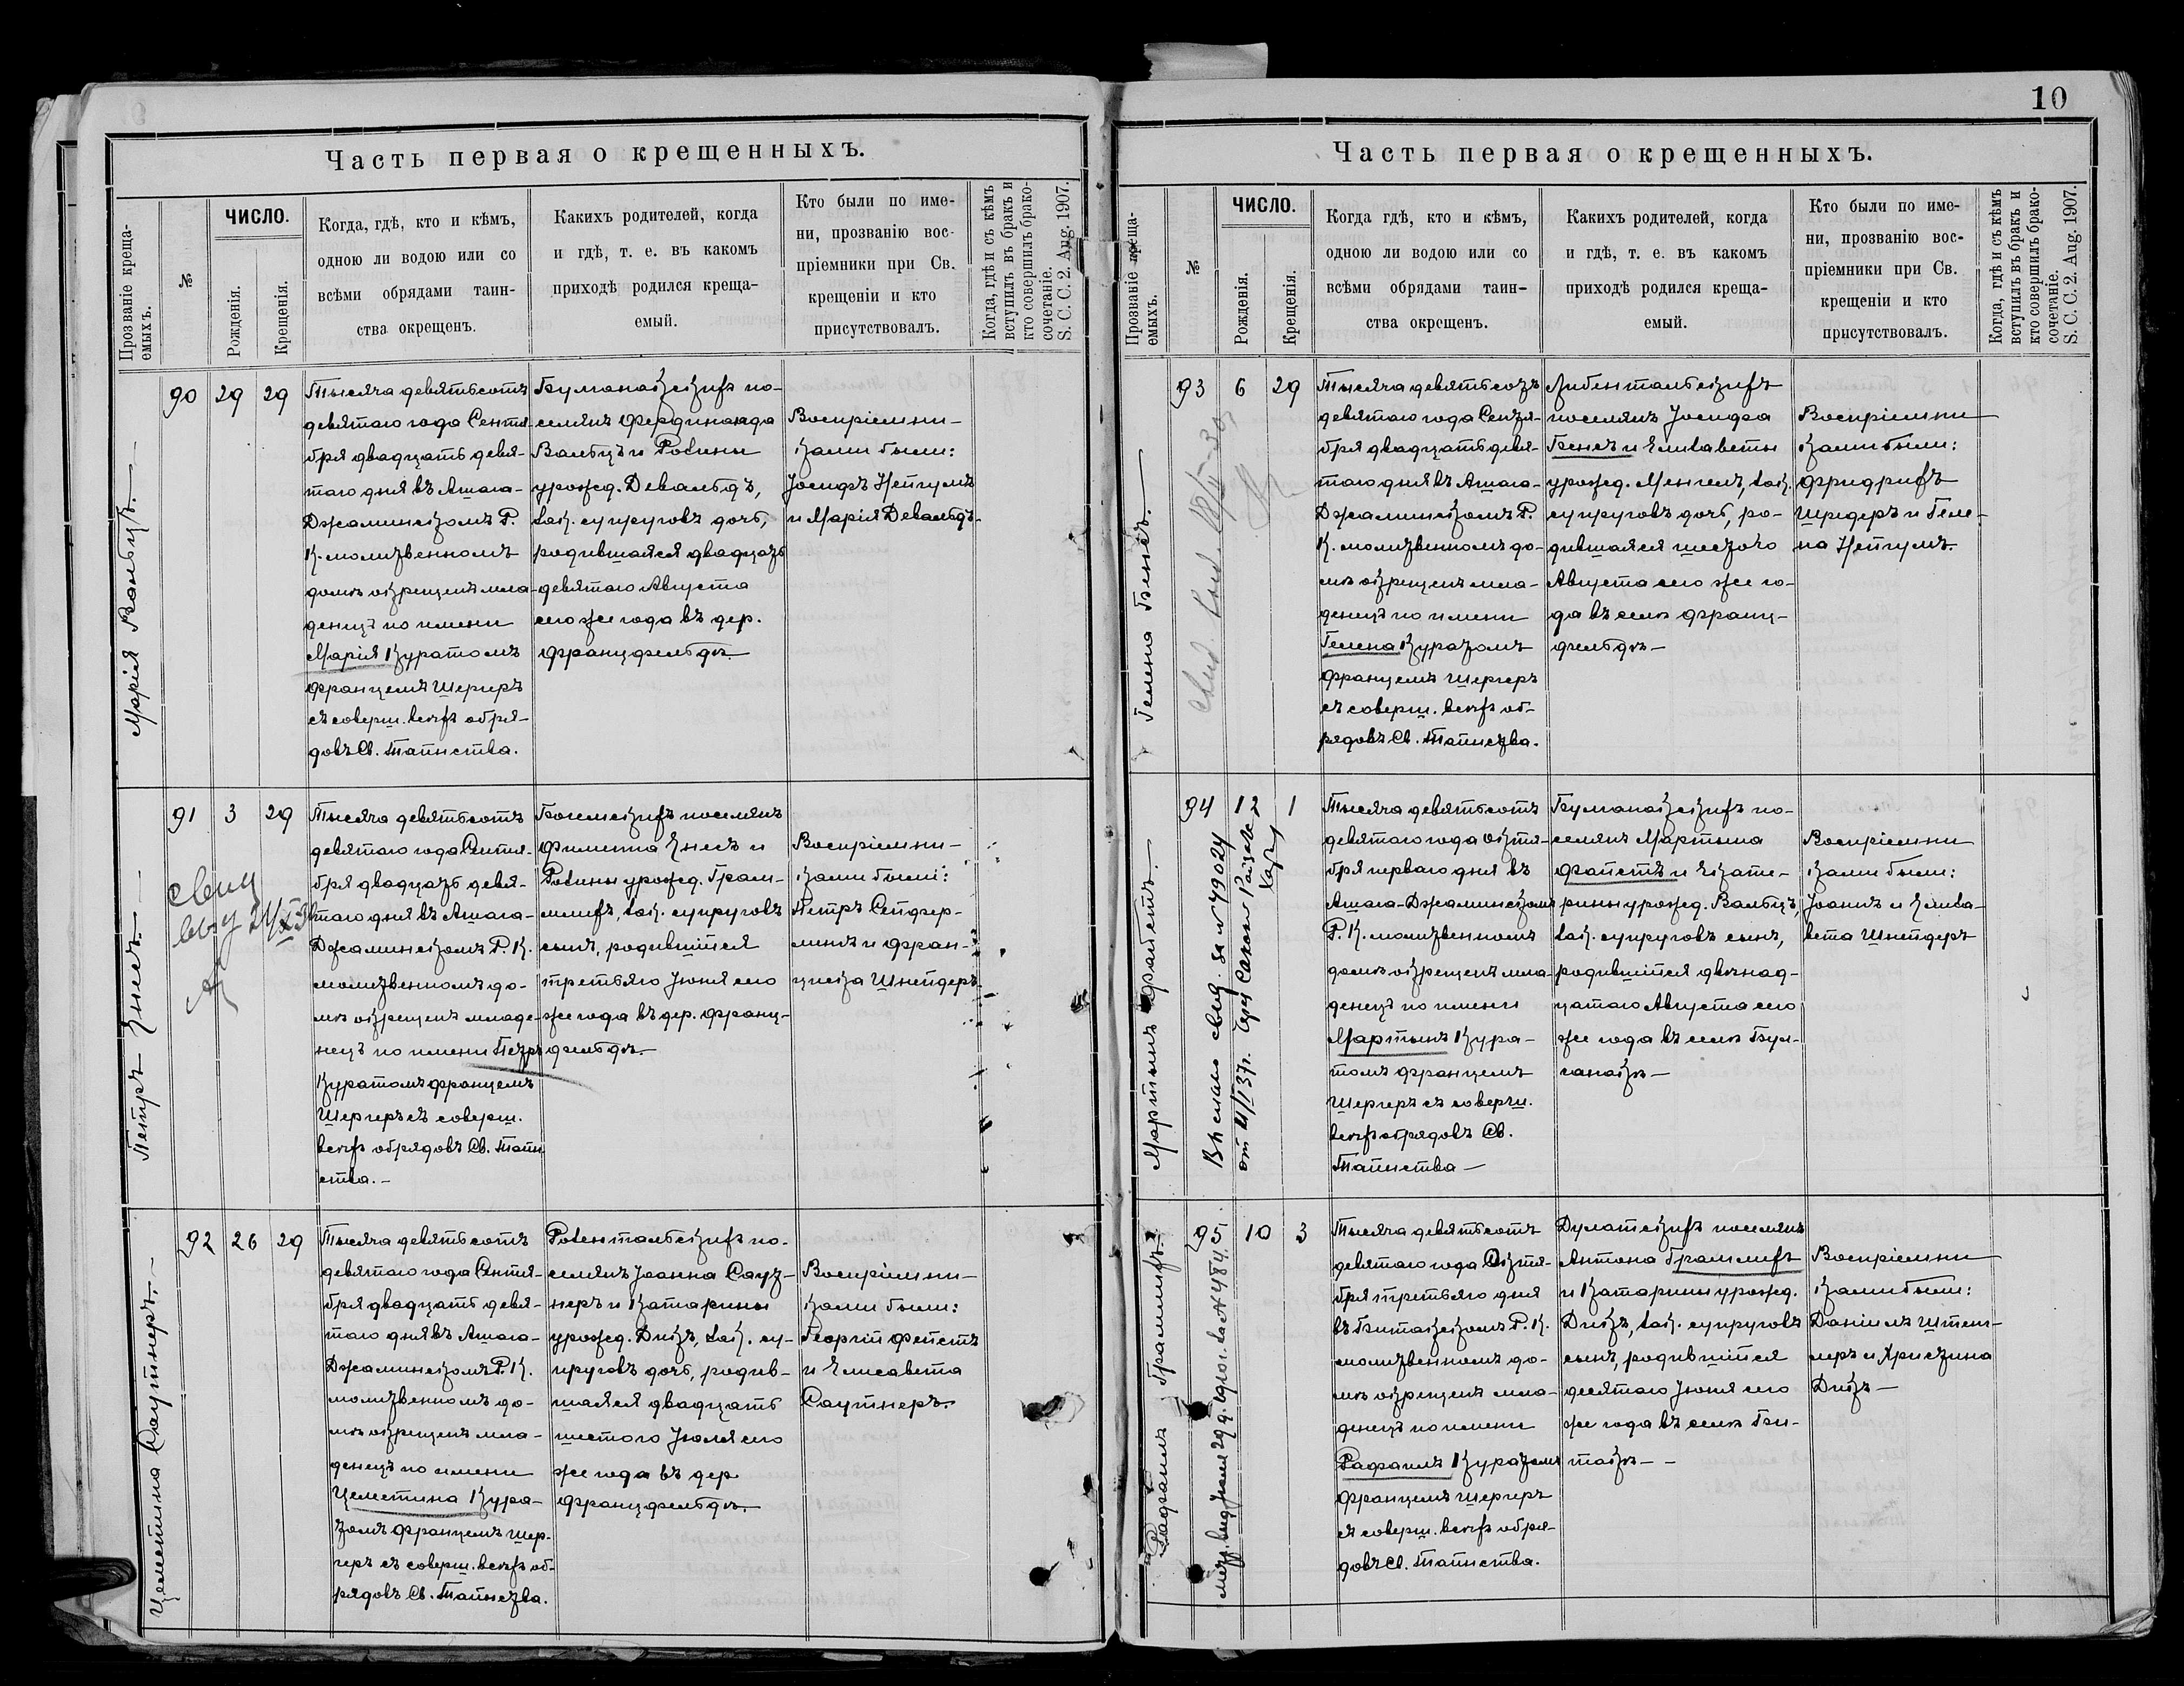 10
Часть первая о крещенныхъ.
Прозваніе креща-
емыхъ.
№
ЧИСЛО.
Рожденія.
Крещенія.
Когда, гдѣ, кто и кѣмъ,
одною ли водою или со
всѣми обрядами таин-
ства окрещенъ.
Какихъ родителей, когда
и гдѣ, т. е. въ какомъ
приходѣ родился креща-
емый.
Кто были по име-
ни, прозванію вос-
пріемники при Св.
крещеніи и кто
присутствовалъ.
Когда, гдѣ и съ кѣмъ
вступилъ въ бракъ и
кто совершилъ брако-
сочетаніе.
S. C. C. 2. Aug. 1907.
Марія Вальцъ.
90
29
29
Тысяча девятьсотъ
девятаго года Сентя-
бря двадцать девя-
таго дня въ Ашага-
Джаминскомъ Р.
К. молитвенномъ
домѣ окрещенъ мла-
денецъ по имени
Марія Куратомъ
Францемъ Шергеръ
съ соверш. всѣхъ обря-
довъ Св. Таинства.
Буманакскихъ по-
селянъ Фердинанда
Вальцъ и Розины
урожд. Девальдъ,
зак. супруговъ дочь,
родившаяся двадцать
девятаго Августа
сего же года въ дер.
Францфельдѣ.
Воспріемни-
ками были:
Іосифъ Нейгумъ
и Марія Девальдъ.
Петръ Энсъ.
91
3
29
Тысяча девятьсотъ
девятаго года Сентя-
бря двадцать девя-
таго дня въ Ашага-
Джаминскомъ Р. К.
молитвенномъ до-
мѣ окрещенъ младе-
нецъ по имени Петръ
Куратомъ Францемъ
Шергеръ съ соверш.
всѣхъ обрядовъ Св. Таин
ства.
Богемскихъ поселянъ
Филиппа Энсъ и
Розины урожд. Грам-
лихъ, зак. супруговъ
сынъ, родившійся
третьяго Іюня сего
же года въ дер. Франц-
фельдѣ.
Воспріемни-
ками были:
Петръ Сейфер-
лингъ и Фран-
циска Шнейдеръ
Целестина Саутнеръ.
92
26
29
Тысяча девятьсотъ
девятаго года Сентя-
бря двадцать девя-
таго дня въ Ашага-
Джаминскомъ Р. К.
молитвенномъ до-
мѣ окрещенъ мла-
денецъ по имени
Целестина Кура-
томъ Францемъ Шер-
геръ съ соверш. всѣхъ об-
рядовъ Св. Таинства.
Розентальскихъ по-
селянъ Іоанна Саут-
неръ и Катарины
урожд. Дикъ, зак. су-
пруговъ дочь, родив-
шаяся двадцать
шестого Іюля сего
же года въ дер.
Францфельдѣ.
Воспріемни-
ками были:
Георгій Фейстъ
и Елисавета
Саутнеръ.
Часть первая о крещенныхъ.
Прозваніе креща-
емыхъ.
№
ЧИСЛО.
Рожденія.
Крещенія.
Когда гдѣ, кто и кѣмъ,
одною ли водою или со
всѣми обрядами таин-
ства окрещенъ.
Какихъ родителей, когда
и гдѣ, т. е. въ какомъ
приходѣ родился креща-
емый.
Кто были по име-
ни, прозванію вос-
пріемники при Св.
крещеніи и кто
присутствовалъ.
Когда, гдѣ и съ кѣмъ
вступилъ въ бракъ и
кто совершилъ брако-
сочетаніе.
S. C. C. 2. Aug. 1907.
Гелена Бенецъ.
93
6
29
Тысяча девятьсотъ
девятаго года Сентя-
бря двадцать девя-
таго дня въ Ашага-
Джаминскомъ Р.
К. молитвенномъ до-
мѣ окрещенъ мла-
денецъ по имени
Гелена Куратомъ
Францемъ Шергеръ
съ соверш. всѣхъ об-
рядовъ Св. Таинства.
Либентальскихъ
поселянъ Іосифа
Бенецъ и Елизаветы
урожд. Менгель, зак.
супруговъ дочь, ро-
дившаяся шестого
Августа сего же го-
да въ селѣ Франц-
фельдѣ
Воспріемни
ками были:
Фридрихъ
Шредеръ и Геле-
на Нейгумъ.
Мартынъ Файстъ.
94
12
1
Тысяча девятьсотъ
девятаго года Октя-
бря перваго дня въ
Ашага-Джаминскомъ
Р. К. молитвенномъ
домѣ окрещенъ мла-
денецъ по имени
Мартынъ Кура-
томъ Францемъ
Шергеръ съ соверш.
всѣхъ обрядовъ Св.
Таинства
Бумапакскихъ по-
селянъ Мартына
Файстъ и Екате-
рины урожд. Вальцъ,
зак. супруговъ сынъ,
родившійся двѣнад-
цатаго Августа сего
же года въ селѣ Бул-
ганакѣ
Воспріемни
ками были:
Іоаннъ и Елиза-
вета Шнейдеръ
Рафаилъ Грамлихъ.
95
10
3
Тысяча девятьсотъ
девятаго года Октя-
бря третьяго дня
въ Битакскомъ Р. К.
молитвенномъ до-
мѣ окрещенъ мла-
денецъ по имени
Рафаилъ Куратомъ
Францемъ Шергеръ
съ соверш. всѣхъ обря-
довъ Св. Таинства.
Дулатскихъ поселянъ
Антона Грамлихъ
и Катарины урожд.
Дикъ, зак. супруговъ
сынъ, родившійся
десятаго Іюня сего
же года въ селѣ Би-
такѣ
Воспріемни
ками были:
Даніилъ Штен-
леръ и Христина
Дикъ